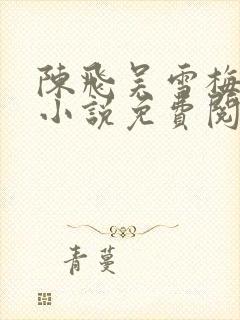 陳飛吴雪梅
小説免費閱
青蔓